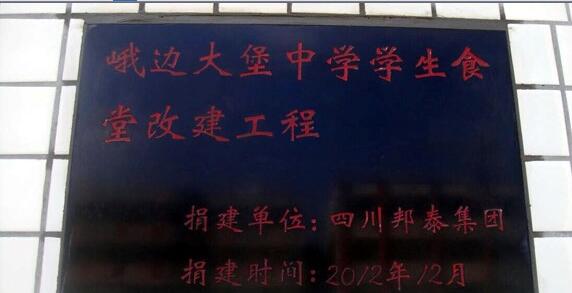 峨边大堡中学学生食
堂改建工程
捐建单位：四川邦泰集团
捐建时间：2012年12月